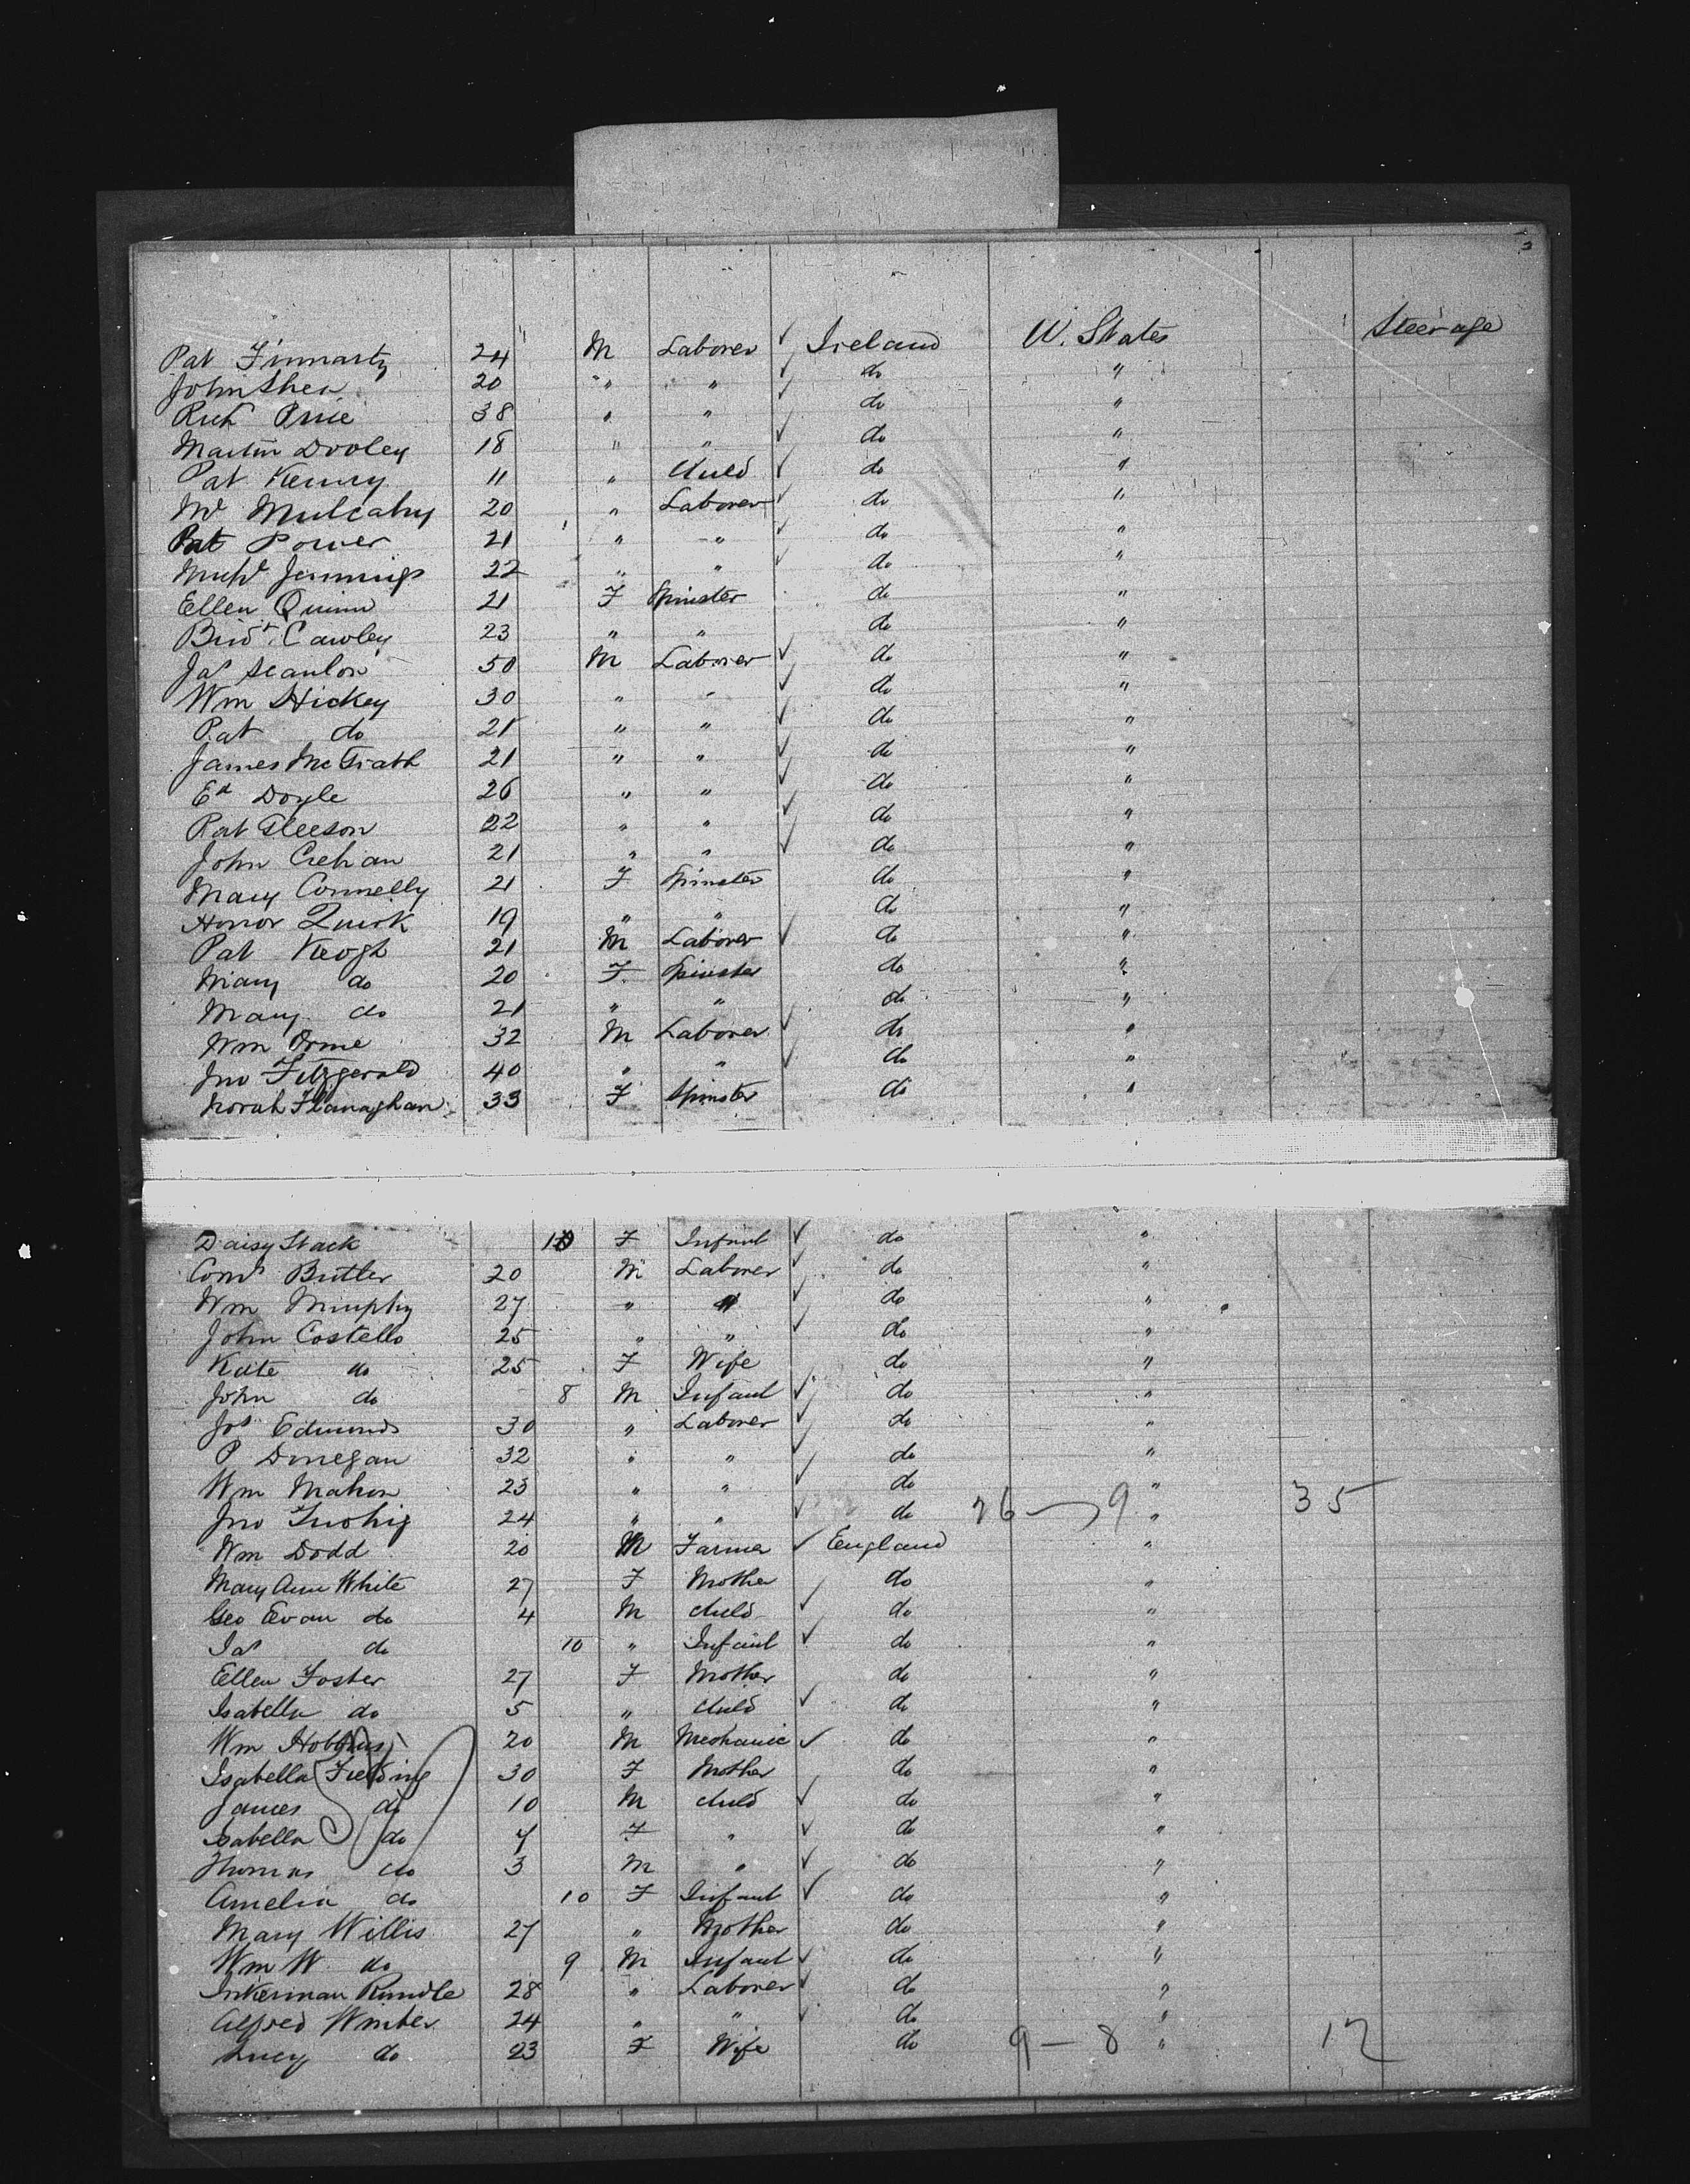 Pat Finnarty 24 M Laborer ✓ Ireland U. States Steerage
John Shea 20 " " ✓ do "
Rich Price 38 " " ✓ do "
Martin Dooley 18 " " ✓ do "
Pat Kenny 11 " Child ✓ do "
Md Mulcahy 20 " Laborer ✓ do "
Pat Power 21 " " ✓ do "
Michl Jennings 22 " " ✓ do "
Ellen Quinn 21 F Spinster do "
Bridt Cawley 23 " " do "
Jas Scanlon 50 M Laborer ✓ do "
Wm Hickey 30 " " ✓ do "
Pat do 21 " " ✓ do "
James McGrath 21 " " ✓ do "
Ed Doyle 26 " " ✓ do "
Pat Gleeson 22 " " ✓ do "
John Crehan 21 " " ✓ do "
Mary Connelly 21 F Spinster do "
Honor Quirk 19 " " do "
Pat Keogh 21 M Laborer ✓ do "
Mary do 20 F Spinster do "
Mary do 21 " " do "
Wm Orme 32 M Laborer ✓ do "
Jno Fitzgerald 40 " " ✓ do "
Norah Flanaghan 33 F Spinster do "
Daisy Stack 10 F Infant ✓ do "
Corns Butler 20 M Laborer ✓ do "
Wm Murphy 27 " " ✓ do "
John Costello 25 " " ✓ do "
Kate do 25 F Wife do "
John do 8 M Infant ✓ do "
Jos Edmunds 30 " Laborer ✓ do "
P Donegan 32 " " ✓ do "
Wm Mahon 23 " " ✓ do "
Jno Twohig 24 " " ✓ do 26 — 9 " 35
Wm Dodd 20 M Farmer ✓ England "
Mary Ann White 27 F Mother do "
Geo Evan do 4 M child ✓ do "
Jas do 10 " Infant ✓ do "
Ellen Foster 27 F Mother do "
Isabella do 5 " child ✓ do "
Wm 20 M Mechanic ✓ do "
Isabella Fielding 30 F Mother do "
James do 10 M child ✓ do "
Isabella do 7 F " ✓ do "
Thomas do 3 M " ✓ do "
Amelia do 10 F Infant ✓ do "
Mary Willis 27 " Mother do "
Wm W. do 9 M Infant ✓ do "
Inkerman Rundle 28 " Laborer ✓ do "
Alfred Winter 24 " " ✓ do "
Lucy do 23 F Wife do 9 — 8 " 17